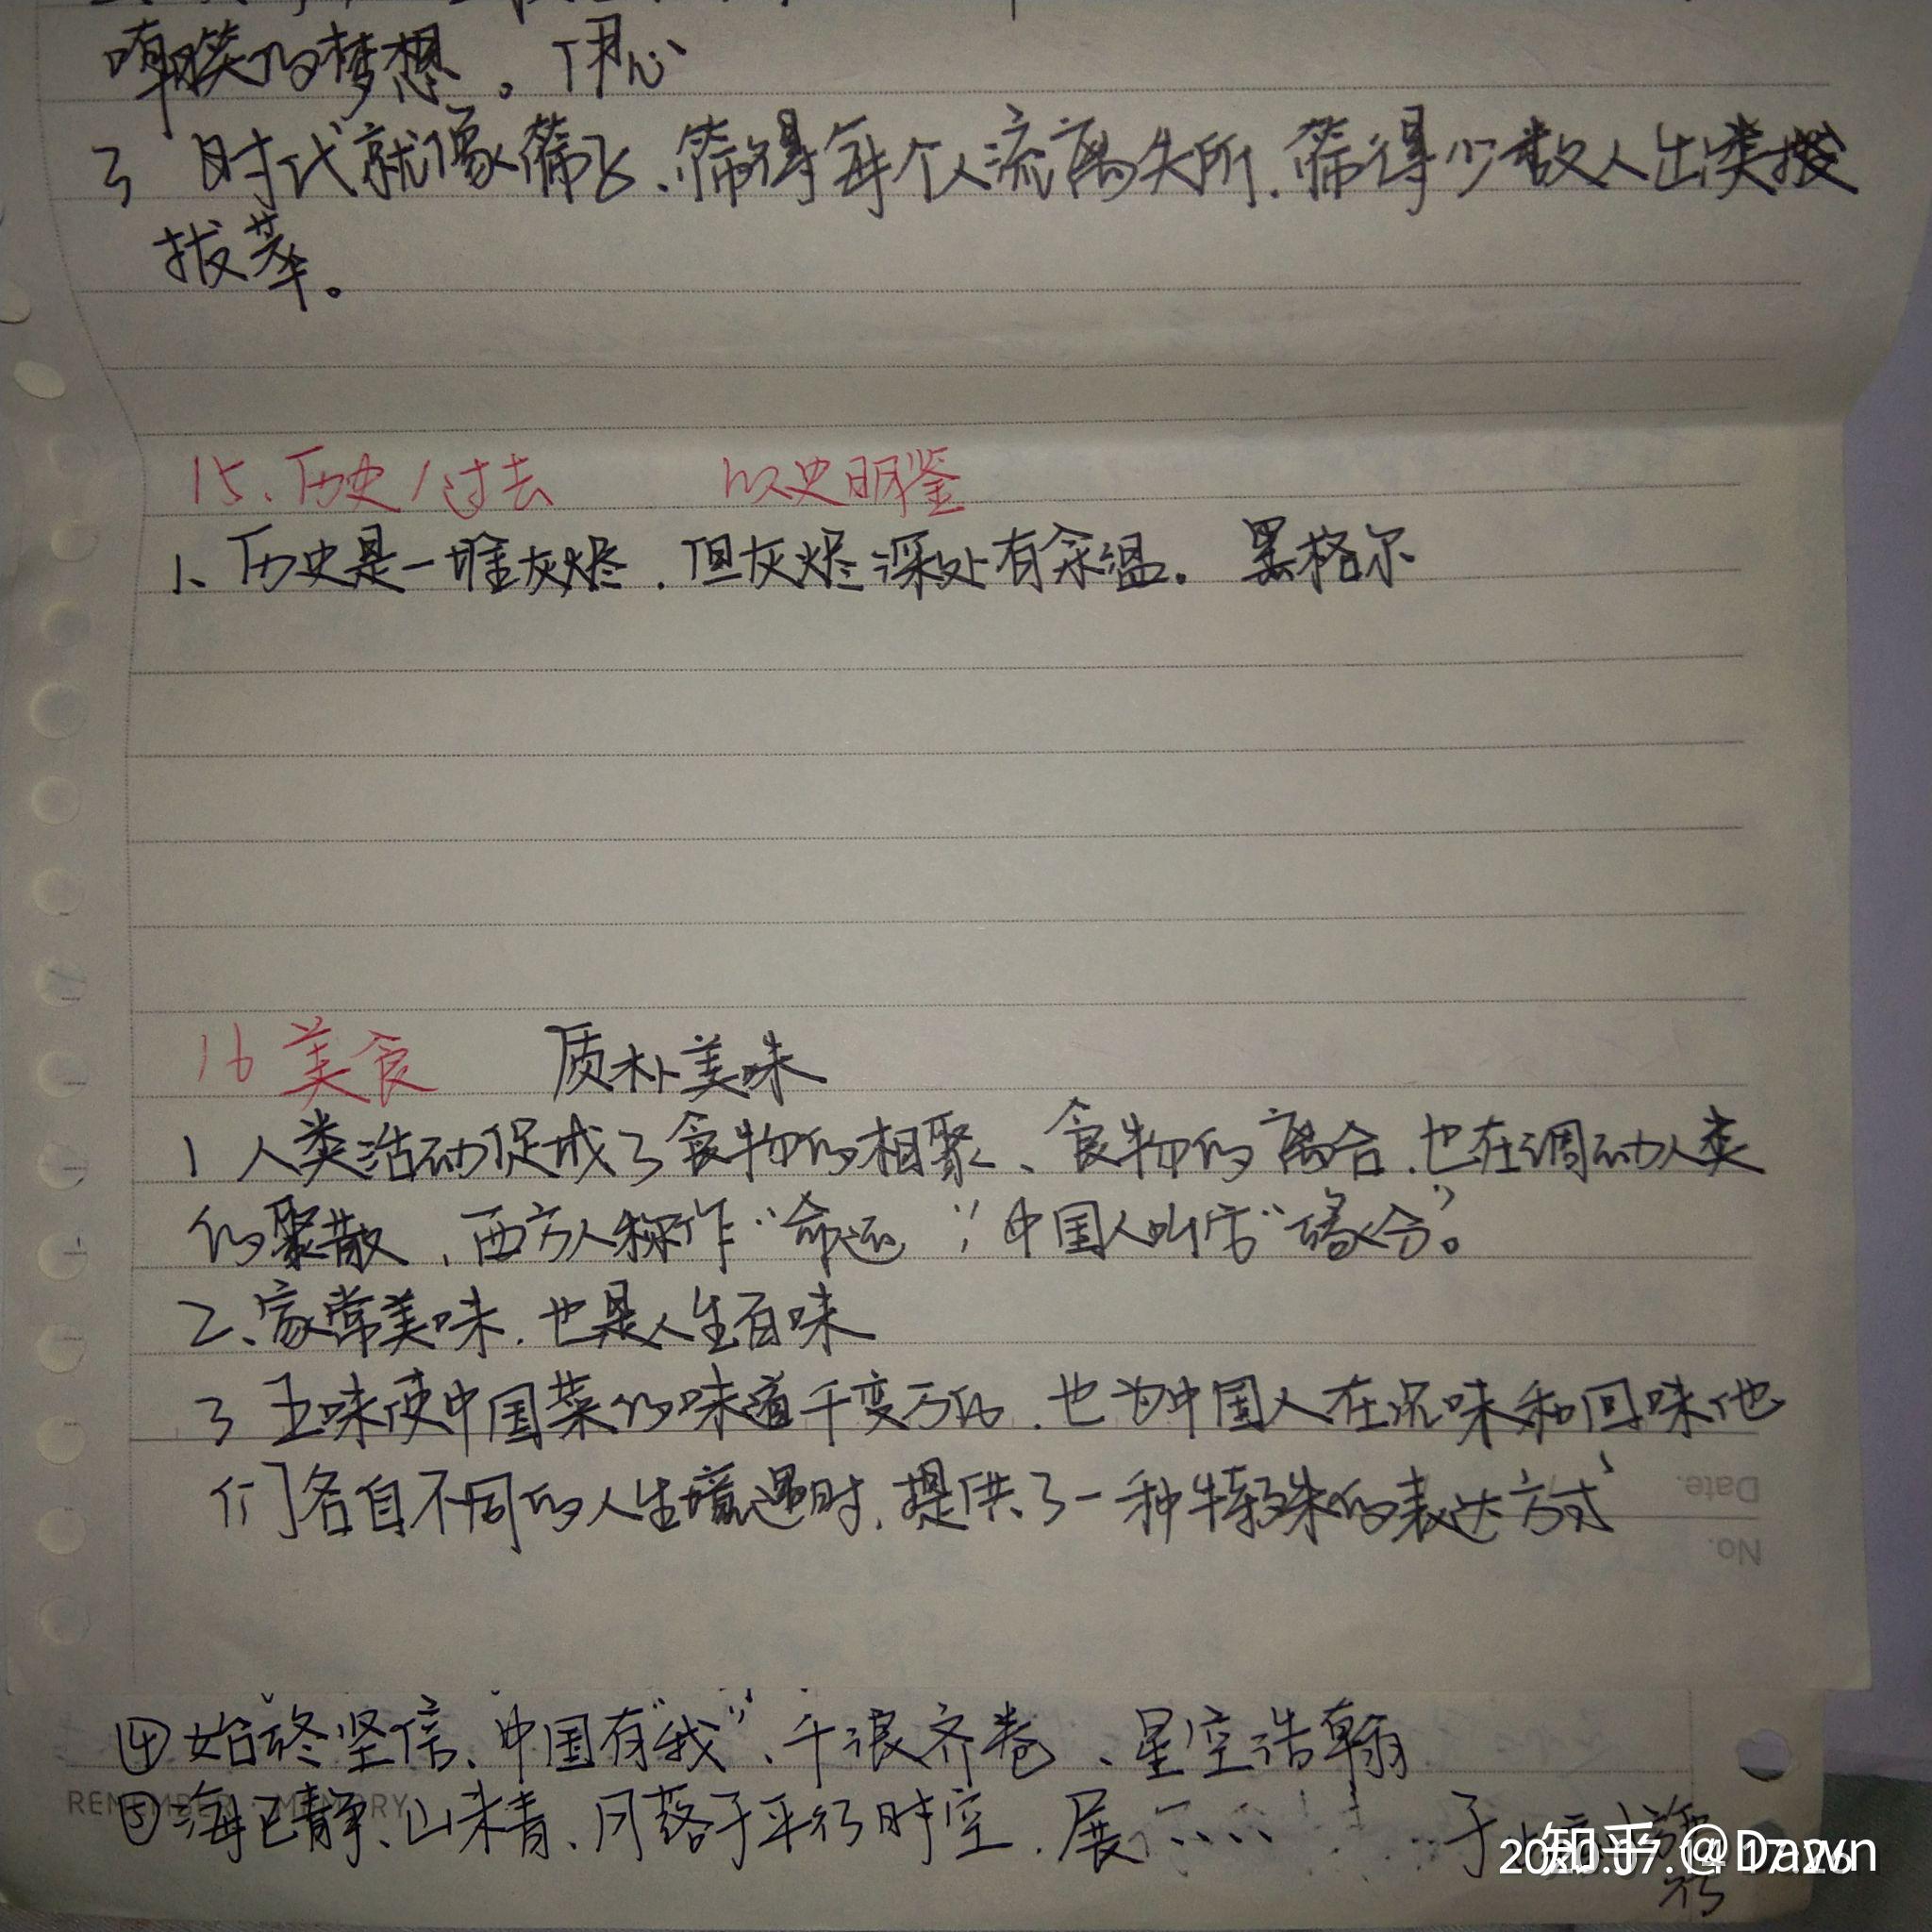 的梦想。用心
3 时代就像筛子、筛得每个人流离失所.筛得少数人出类拔
拔萃。
15、历史/过去 以史明鉴
1、历史是一堆灰烬.但灰烬深处有余温。黑格尔
16 美食 质朴美味
1 人类活动促成了食物的相聚、食物的离合.也在调动人类
的聚散,西方人称作“命运”,中国人叫它“缘分”。
2、家常美味.也是人生百味
3 五味使中国菜的味道千变万化.也为中国人在品味和回味他
们各自不同的人生境遇时.提供了一种特殊的表达方式
④始终坚信、中国有“我”、千浪齐卷、星空浩翰
REMEMBER MEMORY
⑤海已静、山未青、月落于平行时空.展 于
Date.
No.
2020.07.14 17:26
知乎 @Dawn